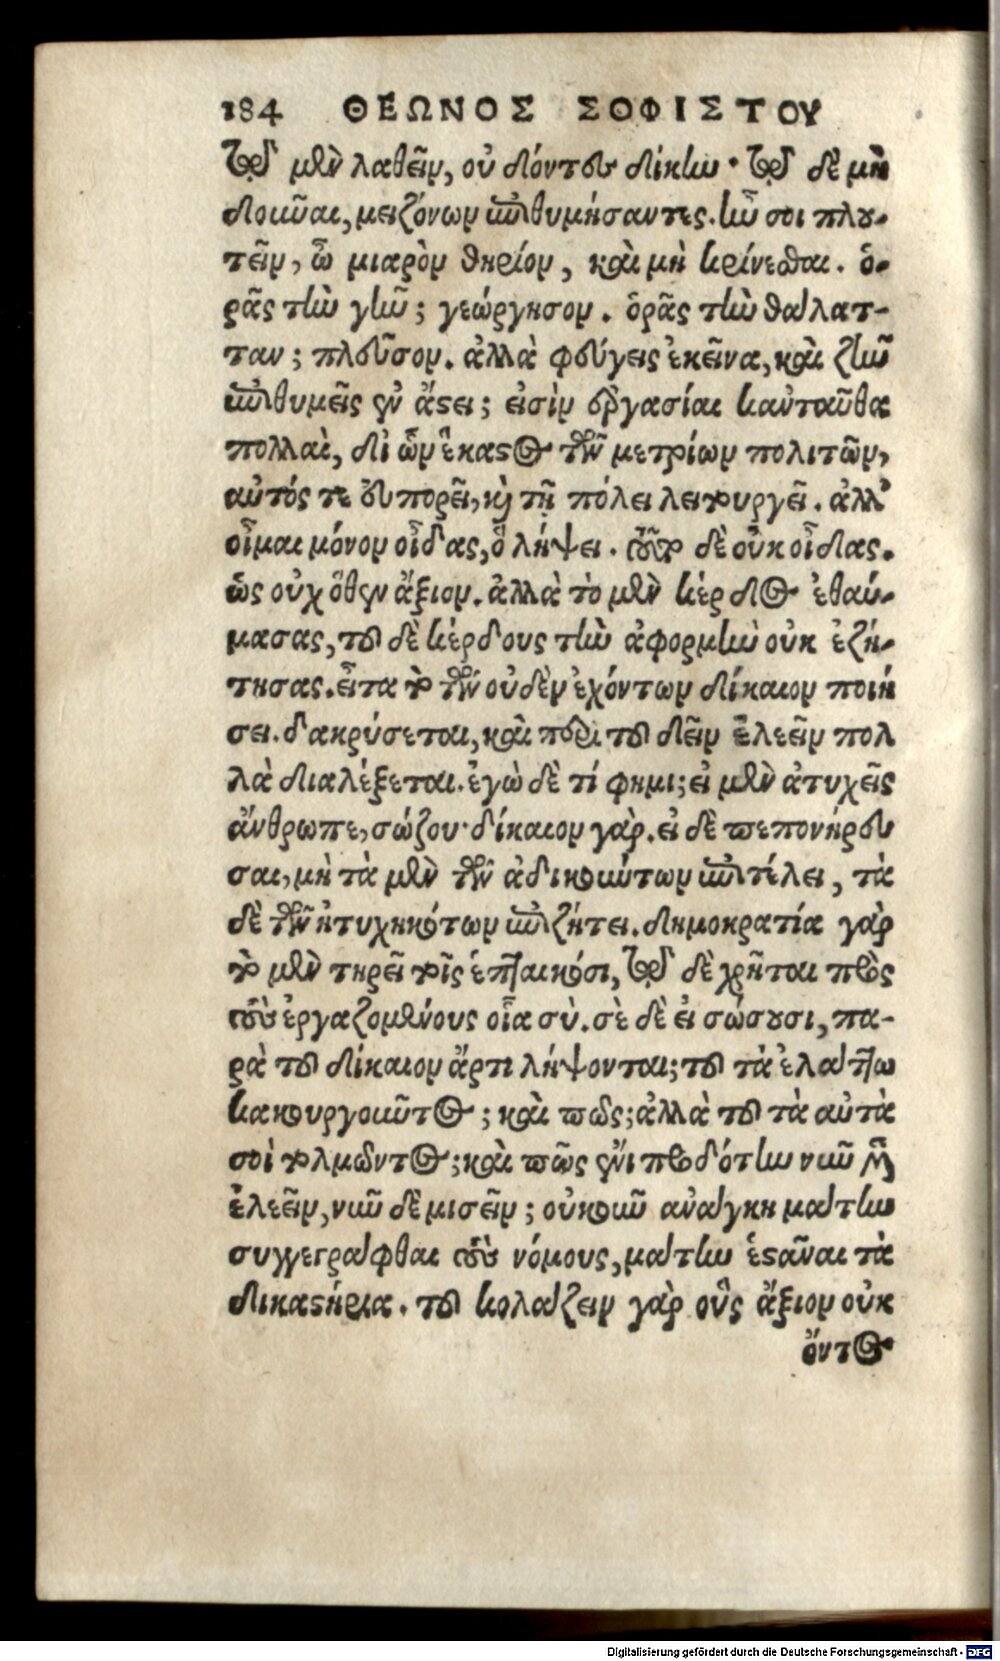 184 ΘΕΩΝΟΣ ΣΟΦΙΣΤΟΥ
ὑπὲρ μὲν λαθεῖν, οὐ δόντες δίκην· ὑπὲρ δὲ μὴ
δοκοῦσαι, μειζόνων ἐπιθυμήσαντες. ἦν σοι πλου-
τεῖν, ὦ μιαρὸν θηρίον, καὶ μὴ κρίνεσθαι. ὁ-
ρᾷς τὴν γῆν; γεώργησον. ὁρᾷς τὴν θάλατ-
ταν; πλεῦσον. ἀλλὰ φεύγεις ἐκεῖνα, καὶ ζῆν
ἐπιθυμεῖς ἐν ἄστει; εἰσὶν ἐργασίαι κἀνταῦθα
πολλαὶ, δι' ὧν ἕκαστος τῶν μετρίων πολιτῶν,
αὐτός τε εὐπορεῖ, καὶ τῇ πόλει λειτουργεῖ. ἀλλ'
οἶμαι μόνον οἶδας, ὃ λήψει. τοῦτο δὲ οὐκ οἶδας.
ὡς οὐχ ὅθεν ἄξιον. ἀλλὰ τὸ μὲν κέρδος ἐθαύ-
μασας, τοῦ δὲ κέρδους τὴν ἀφορμὴν οὐκ ἐζή-
τησας. εἶτα τὸ τῶν οὐδὲν ἐχόντων δίκαιον ποιή
σει. δακρύσεται, καὶ περὶ τοῦ δεῖν ἐλεεῖν πολ
λὰ διαλέξεται. ἐγὼ δὲ τί φημι; εἰ μὲν ἀτυχεῖς
ἄνθρωπε, σώζου· δίκαιον γὰρ. εἰ δὲ πεπονήρευ
σαι, μὴ τὰ μὲν τῶν ἀδικούντων ἐπιτέλει, τὰ
δὲ τῶν ἠτυχηκότων ἐπιζήτει. δημοκρατία γὰρ
τὸ μὲν τηρεῖ τοῖς ἐπταικόσι, ὑπὲρ δὲ χρῆται πρὸς
τοὺς ἐργαζομένους οἷα σὺ. σὲ δὲ εἰ σώσουσι, πα-
ρὰ τοῦ δίκαιον ἄρτι λήψονται; τοῦ τὰ ἐλάττω
κακουργοῦντος; καὶ πῶς; ἀλλὰ τοῦ τὰ αὐτὰ
σοὶ τολμῶντος; καὶ πῶς ἔνι προδότην νῦν μὲν
ἐλεεῖν, νῦν δὲ μισεῖν; οὐκοῦν ἀνάγκη μάτην
συγγεγράφθαι τοὺς νόμους, μάτην ἑστάναι τὰ
δικαστήρια. τοῦ κολάζειν γὰρ οὓς ἄξιον οὐκ
ὄντος
Digitalisierung gefördert durch die Deutsche Forschungsgemeinschaft - DFG